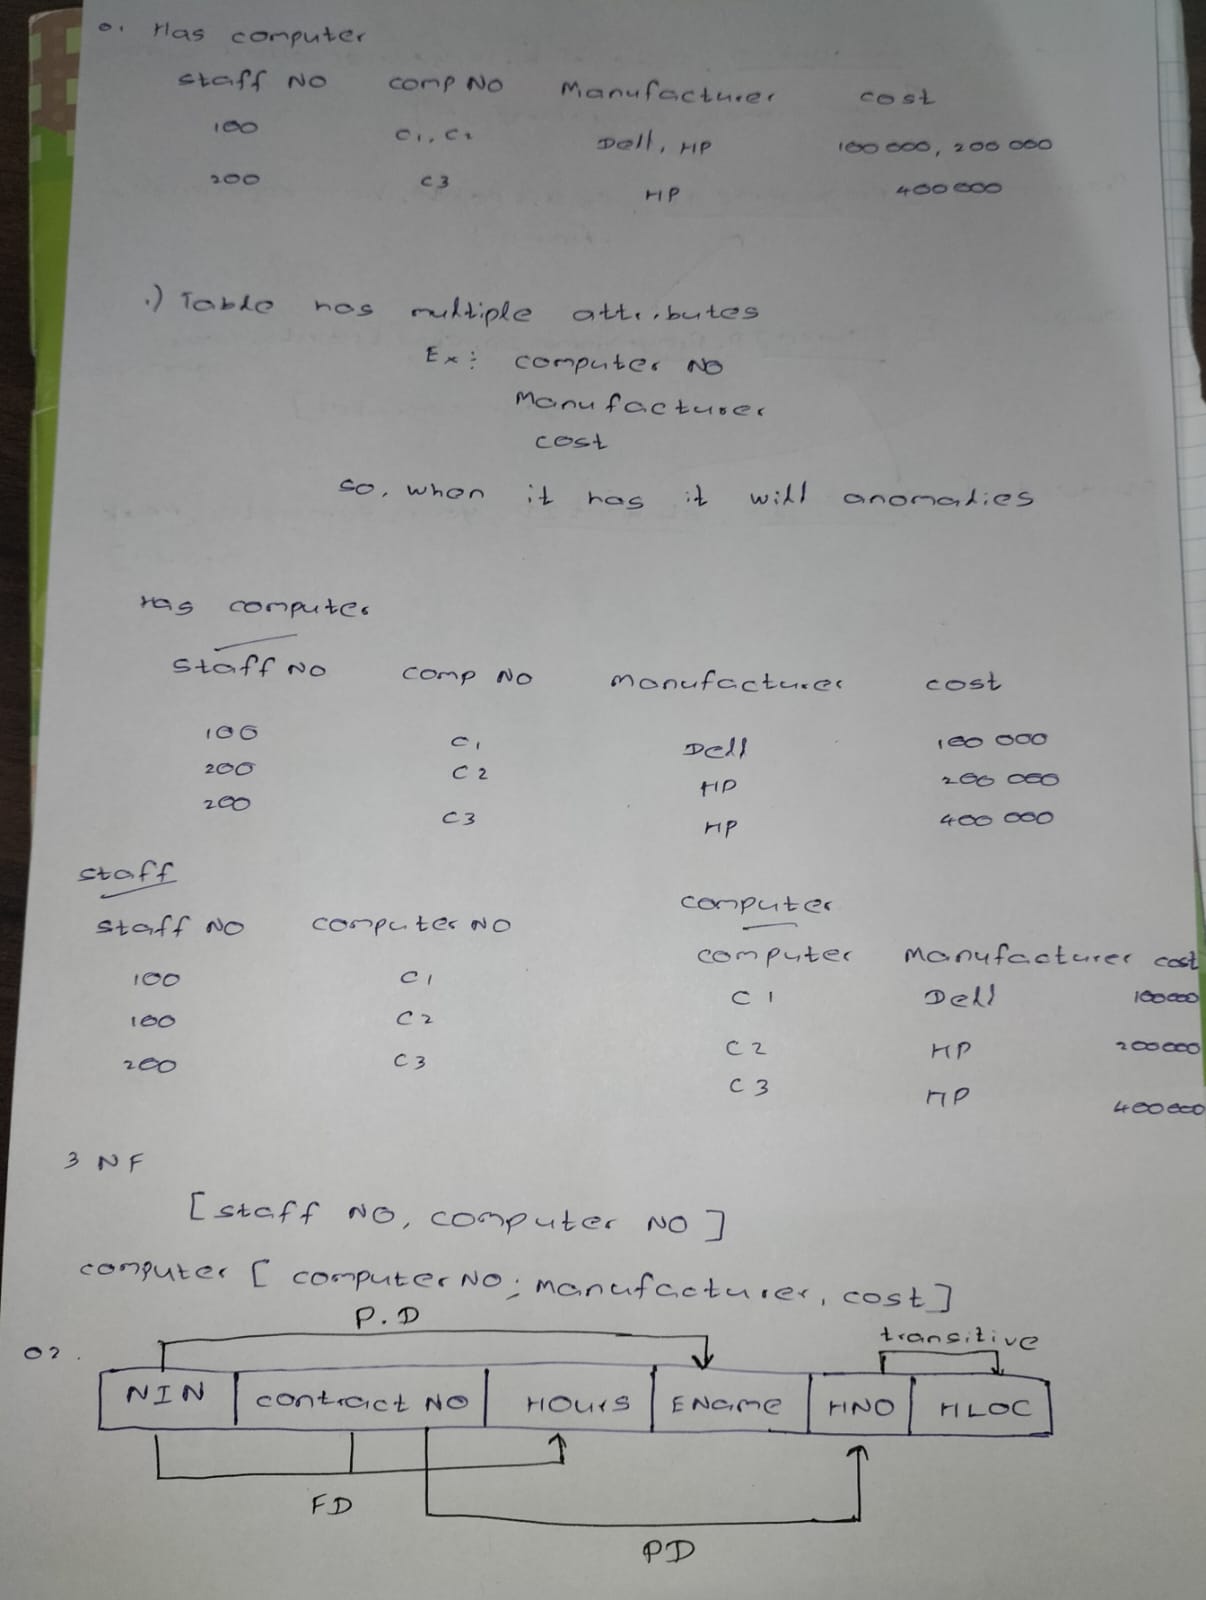 01 Has computer
staff NO comp NO Manufacturer cost
100 C1, C2 Dell, HP 100 000, 200 000
200 C3 HP 400 000
.) Table has multiple attributes
Ex: computer NO
Manufacturer
cost
so, when it has it will anomalies
Has computer
staff NO comp NO manufacturer cost
100 C1 Dell 100 000
200 C2 HP 200 000
200 C3 HP 400 000
staff
staff NO computer NO
100 C1
100 C2
200 C3
computer
computer Manufacturer cost
C1 Dell 100000
C2 HP 200000
C3 HP 400000
3 NF
[staff NO, computer NO]
computer [computer NO; manufacturer, cost]
P.D
transitive
02. NIN contract NO HOURS EName HNO HLOC
FD
PD